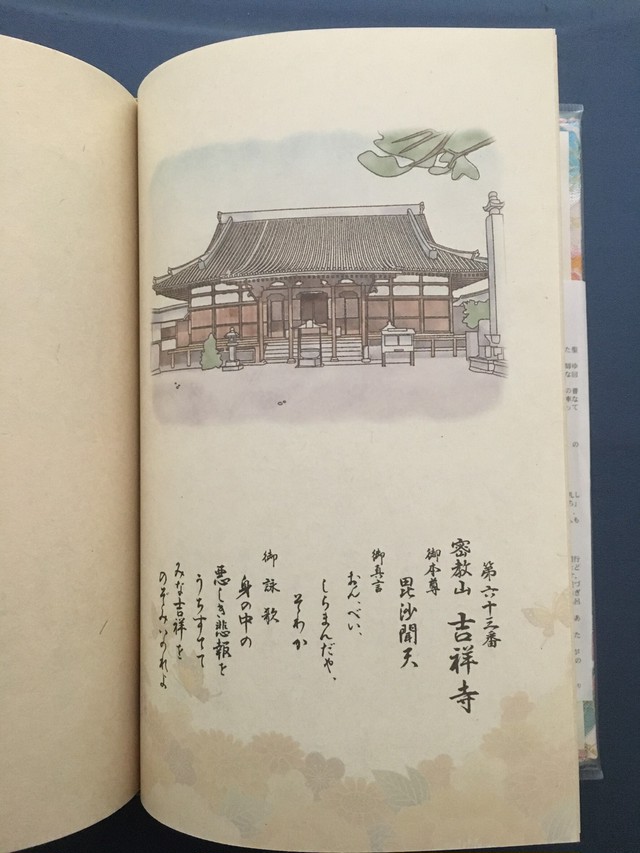 第六十三番
密教山 吉祥寺
御本尊
毘沙聞天
御真言
おん、べい、
しらまんだや、
そわか
御詠歌
身の中の
悪しき悲報を
うちすてて
みな吉祥を
のぞみいのれよ